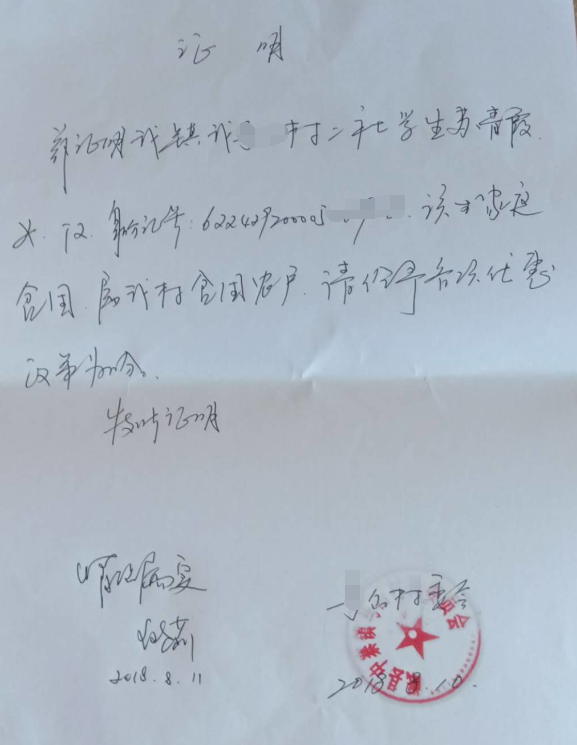 证 明
兹证明我镇我 村二社学生苏霄霞
女.汉.身份证号:622429200005 .该生家庭
贫困.属我村贫困农户.请给予各项优惠
政策为盼。
特此证明
情况属实
2018.8.11
村委会
2018.8.10.